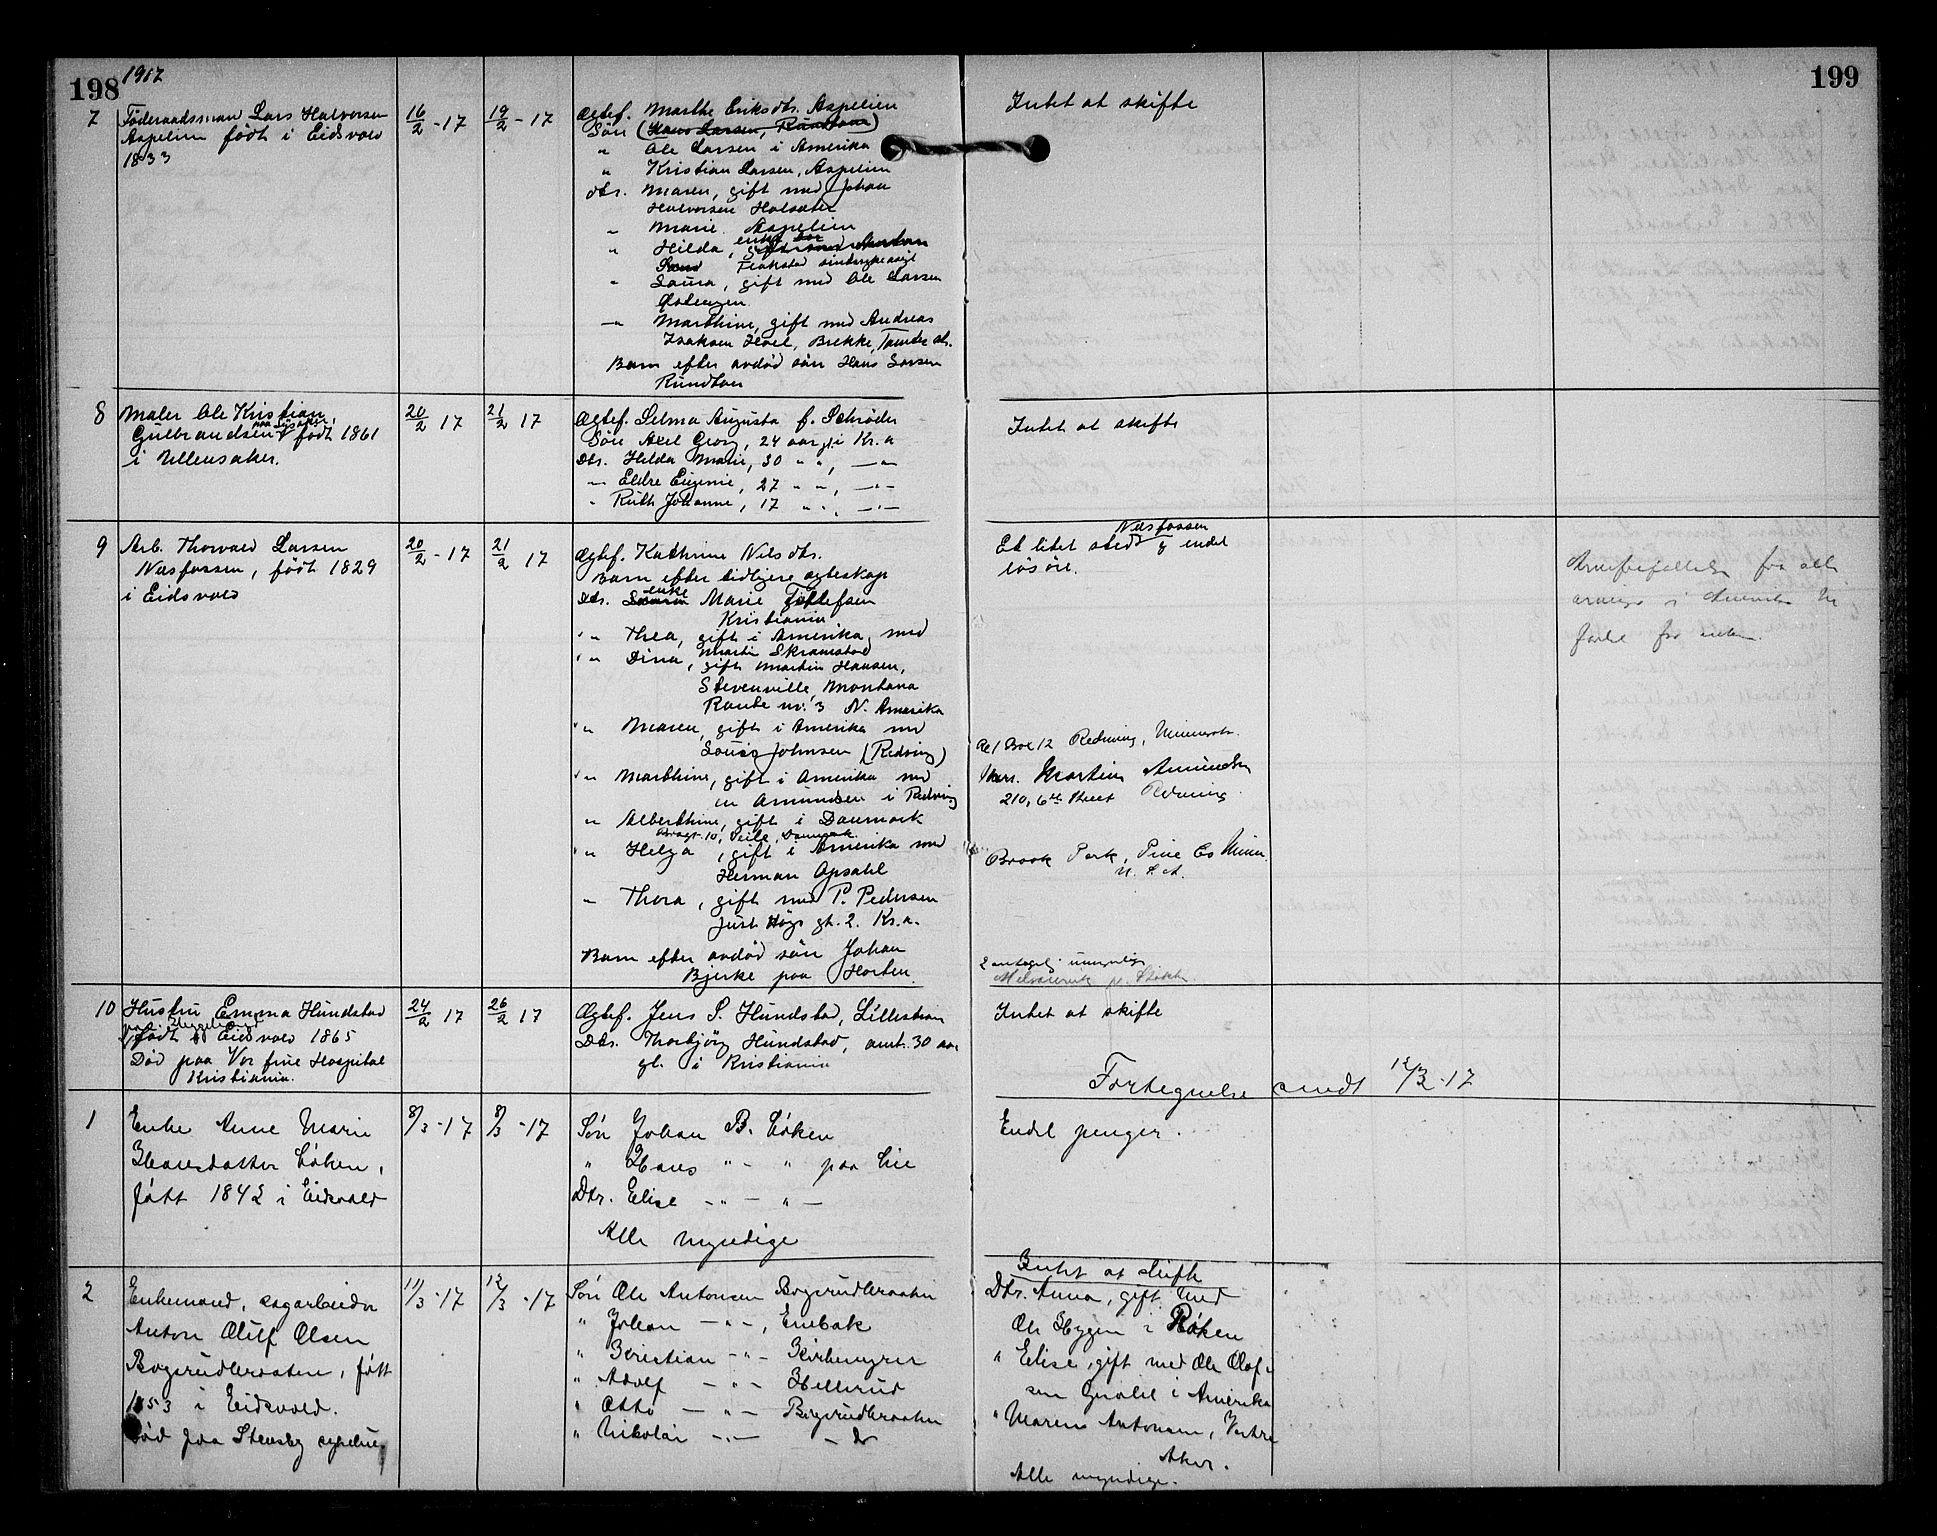 198 1917
199
7 Föderaadsmand Lars Halvorsen
Aspelien født i Eidsvold
1833
16/2 - 17
19/2 - 17
Ægtef. Marthe Eriksdtr. Aspelien
Søn (Hans Larsen, Rundtom)
" Ole Larsen i Amerika
" Kristian Larsen, Aspelien
Dtr. Maren, gift med Johan
Halvorsen Holsæter
" Marie Aspelien
" Hilda, enke
" Laura, gift med Ole Larsen
" Marthine, gift med Andreas
Isaksen Brekke,
Barn efter avdød søn Hans Larsen
Rundtom
Intet at skifte
8 Maler Ole Kristian
Gulbrandsen født 1861
i Ullensaker.
20/2 17
21/2 17
Ægtef. Selma Augusta f. Schrøder
Søn Axel Georg, 24 aar gl. i Kr.a
Dtr. Hilda Marie, 30 " ", — " —
" Eldre Eugenie, 27 " ", — " —
" Ruth Johanne, 17 " ", — " —
Intet at skifte
9 Arb. Thorvald Larsen
Nesfossen, født 1829
i Eidsvold
20/2 - 17
21/2 17
Ægtef. Kathrine Nilsdtr.
Barn efter tidligere ægteskap
Dtr. enke Marie
Kristiania
" Thea, gift i Amerika med
Martin Skramstad
" Dina, gift Martin Hansen,
Stevenville, Montana
Route nr. 3 N. Amerika
" Maren, gift i Amerika med
Louis Johnsen (Redwing)
" Marthine, gift i Amerika med
en Amundsen i Redwing
" Alberthine, gift i Danmark
10, Veile, Danmark
" Helga, gift i Amerika med
Herman Opsahl
" Thora, gift med P. Pedersen
Just Høgs gt. 2. Kr.a.
Barn efter avdød søn Johan
Bjerke paa Horten
Et litet sted Nesfossen & endel
løsøre.
R 1 Box 12 Redwing, Minnesota
Mrs. Martin Amundsen
210, 6th Street Redwing
Brook Park, Pine Co Minn.
U. S. A.
2 umyndige
Arvefrafallelse fra alle
arvinger i Amerika
10 Hustru Emma Hundstad
født i Eidsvold 1865
Død paa Vor frue Hospital
Kristiania.
24/2 17
26/2 17
Ægtef. Jens S. Hundstad, Lillestrøm
Dtr. Thorbjörg Hundstad, omt. 30 aar
gl. i Kristiania
Intet at skifte
Fortegnelse sendt 12/3 - 17
1 Enke Anne Marie
Hansdatter Løken,
født 1842 i Eidsvold
8/3 - 17
8/3 - 17
Søn Johan B. Løken
" Hans " - " paa Lie
Dtr. Elise - " - " -
Alle myndige
Endel penger.
2 Enkemand, sagarbeider
Anton Oluf Olsen
Bøgerudbraaten, født
1853 i Eidsvold.
Død paa Stensby sykehus
11/3 - 17
12/3 - 17
Søn Ole Antonsen Bøgerudbraaten
" Johan — " —, Enebak
" Kristian — " — Kirkemyrer
" Adolf — " — Hellerud
" Otto — " — Bøgerudbraaten
" Nikolai — " — do
Intet at skifte
Dtr. Anna, gift med
Ole Hygen i Røken
" Elise, gift med Ole Olaf-
sen i Amerika
" Maren Antonsen, Vestre
Aker.
Alle myndige.